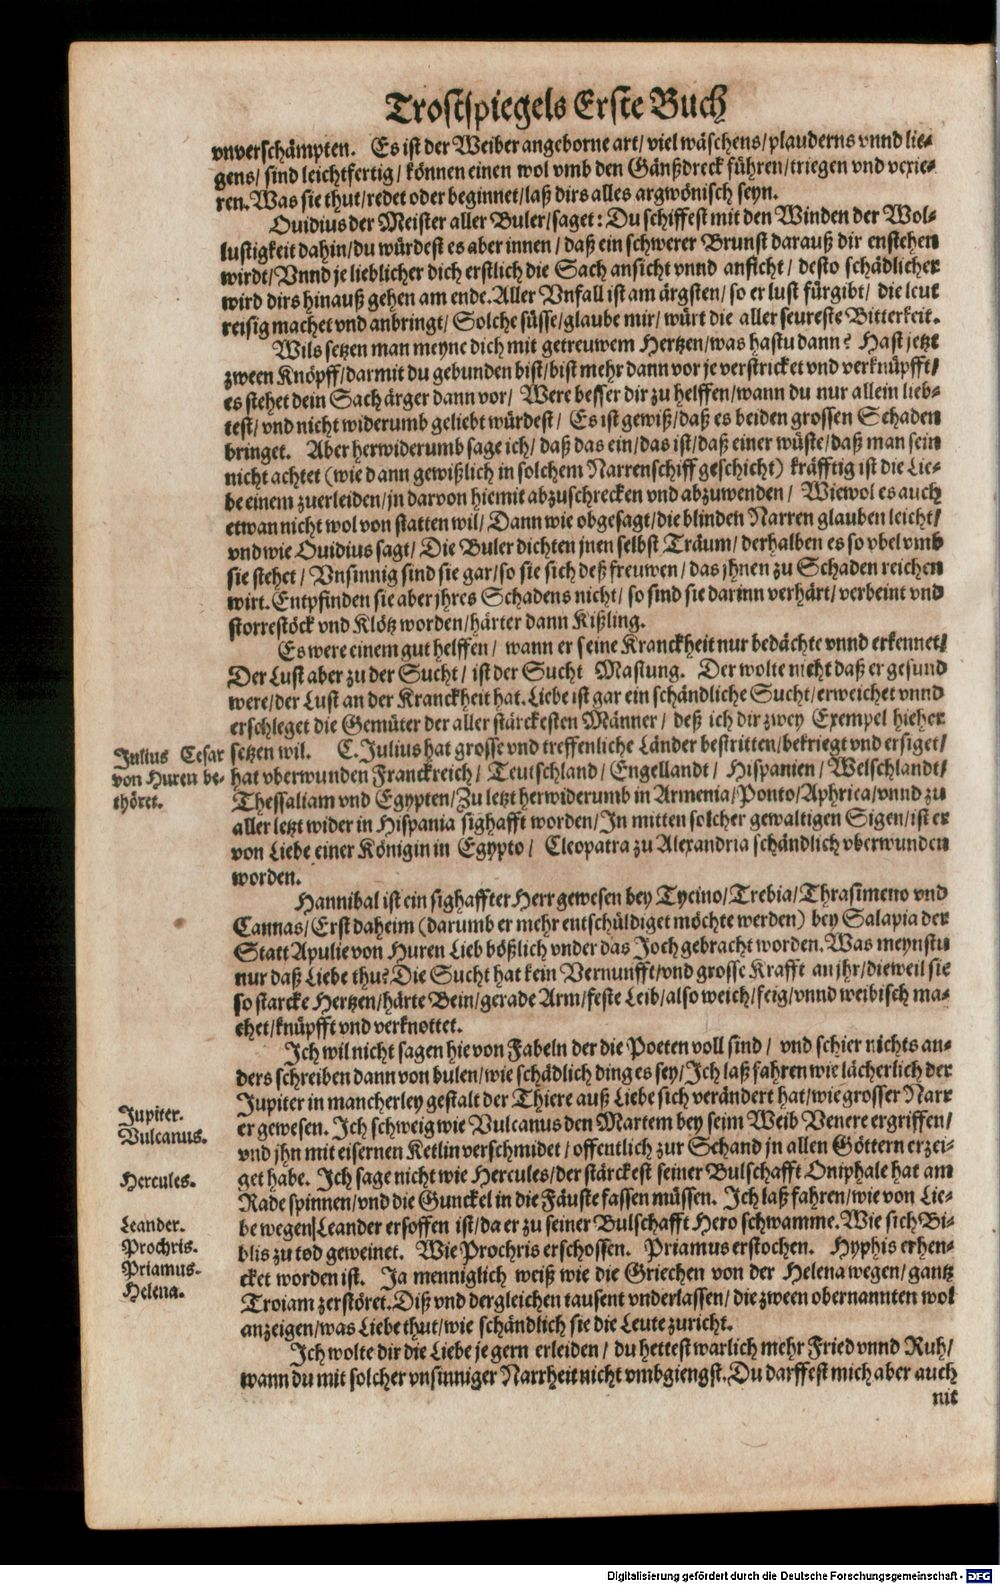 Trostspiegels Erste Buch
vnverschämpten. Es ist der Weiber angeborne art/ viel wäschens/plauderns vnnd lie-
gens/ sind leichtfertig/ können einen wol vmb den Gänßdreck führen/triegen vnd vexie-
ren. Was sie thut/redet oder beginnet/laß dirs alles argwönisch seyn.
Ouidius der Meister aller Buler/saget: Du schiffest mit den Winden der Wol-
lustigkeit dahin/du würdest es aber innen/ daß ein schwerer Brunst darauß dir enstehen
wirdt/Vnnd je lieblicher dich erstlich die Sach ansicht vnnd anficht/ desto schädlicher
wird dirs hinauß gehen am ende. Aller Vnfall ist am ärgsten/ so er lust fürgibt/ die leut
reisig machet vnd anbringt/ Solche süsse/glaube mir/ würt die aller seureste Bitterkeit.
Wils setzen man meyne dich mit getreuwem Hertzen/was hastu dann? Hast jetzt
zween Knöpff/darmit du gebunden bist/bist mehr dann vor je verstricket vnd verknüpfft/
es stehet dein Sach ärger dann vor/ Were besser dir zu helffen/wann du nur allein lieb-
test/ vnd nicht widerumb geliebt würdest/ Es ist gewiß/daß es beiden grossen Schaden
bringet. Aber herwiderumb sage ich/ daß das ein/das ist/daß einer wüste/daß man sein
nicht achtet (wie dann gewißlich in solchem Narrenschiff geschicht) kräfftig ist die Lie-
be einem zuerleiden/jn darvon hiemit abzuschrecken vnd abzuwenden/ Wiewol es auch
etwan nicht wol von statten wil/ Dann wie obgesagt/die blinden Narren glauben leicht/
vnd wie Ouidius sagt/ Die Buler dichten jnen selbst Träum/ derhalben es so vbel vmb
sie stehet/ Vnsinnig sind sie gar/so sie sich deß freuwen/ das jhnen zu Schaden reichen
wirt. Entpfinden sie aber jhres Schadens nicht/ so sind sie darinn verhärt/verbeint vnd
storrestöck vnd Klötz worden/härter dann Kißling.
Es were einem gut helffen/ wann er seine Kranckheit nur bedächte vnnd erkennet/
Der Lust aber zu der Sucht/ ist der Sucht Mastung. Der wolte nicht daß er gesund
were/der Lust an der Kranckheit hat. Liebe ist gar ein schändliche Sucht/erweichet vnnd
erschleget die Gemüter der aller stärckesten Männer/ deß ich dir zwey Exempel hieher
Julius Cesar
von Huren be-
thöret.
setzen wil. C. Julius hat grosse vnd treffenliche Länder bestritten/bekriegt vnd ersiget/
hat vberwunden Franckreich/ Teutschland/ Engellandt/ Hispanien/ Welschlandt/
Thessaliam vnd Egypten/Zu letzt herwiderumb in Armenia/Ponto/Aphrica/vnnd zu
aller letzt wider in Hispania sighafft worden/In mitten solcher gewaltigen Sigen/ist er
von Liebe einer Königin in Egypto/ Cleopatra zu Alexandria schändlich vberwunden
worden.
Hannibal ist ein sighaffter Herr gewesen bey Tycino/Trebia/Thrasimeno vnd
Cannas/Erst daheim (darumb er mehr entschüldiget möchte werden) bey Salapia der
Statt Apulie von Huren Lieb bößlich vnder das Joch gebracht worden. Was meynstu
nur daß Liebe thu? Die Sucht hat kein Vernunfft/vnd grosse Krafft an jhr/dieweil sie
so starcke Hertzen/härte Bein/gerade Arm/feste Leib/also weich/feig/vnnd weibisch ma-
chet/knüpfft vnd verknottet.
Ich wil nicht sagen hie von Fabeln der die Poeten voll sind/ vnd schier nichts an-
ders schreiben dann von bulen/wie schädlich ding es sey/Ich laß fahren wie lächerlich der
Jupiter.
Vulcanus.
Jupiter in mancherley gestalt der Thiere auß Liebe sich verändert hat/wie grosser Narr
er gewesen. Ich schweig wie Vulcanus den Martem bey seim Weib Venere ergriffen/
vnd jhn mit eisernen Ketlin verschmidet/ offentlich zur Schand jn allen Göttern erzei-
Hercules.
get habe. Ich sage nicht wie Hercules/der stärckest seiner Bulschafft Oniphale hat am
Rade spinnen/vnd die Gunckel in die Fäuste fassen müssen. Ich laß fahren/wie von Lie-
Leander.
Prochris.
Priamus.
Helena.
be wegen Leander ersoffen ist/da er zu seiner Bulschafft Hero schwamme. Wie sich Bi-
blis zu tod geweinet. Wie Prochris erschossen. Priamus erstochen. Hyphis erhen-
cket worden ist. Ja menniglich weiß wie die Griechen von der Helena wegen/gantz
Troiam zerstöret. Diß vnd dergleichen tausent vnderlassen/ die zween obernannten wol
anzeigen/was Liebe thut/wie schändlich sie die Leute zuricht.
Ich wolte dir die Liebe je gern erleiden/ du hettest warlich mehr Fried vnnd Ruh/
wann du mit solcher vnsinniger Narrheit nicht vmbgiengst. Du darffest mich aber auch
nit
Digitalisierung gefördert durch die Deutsche Forschungsgemeinschaft - DFG